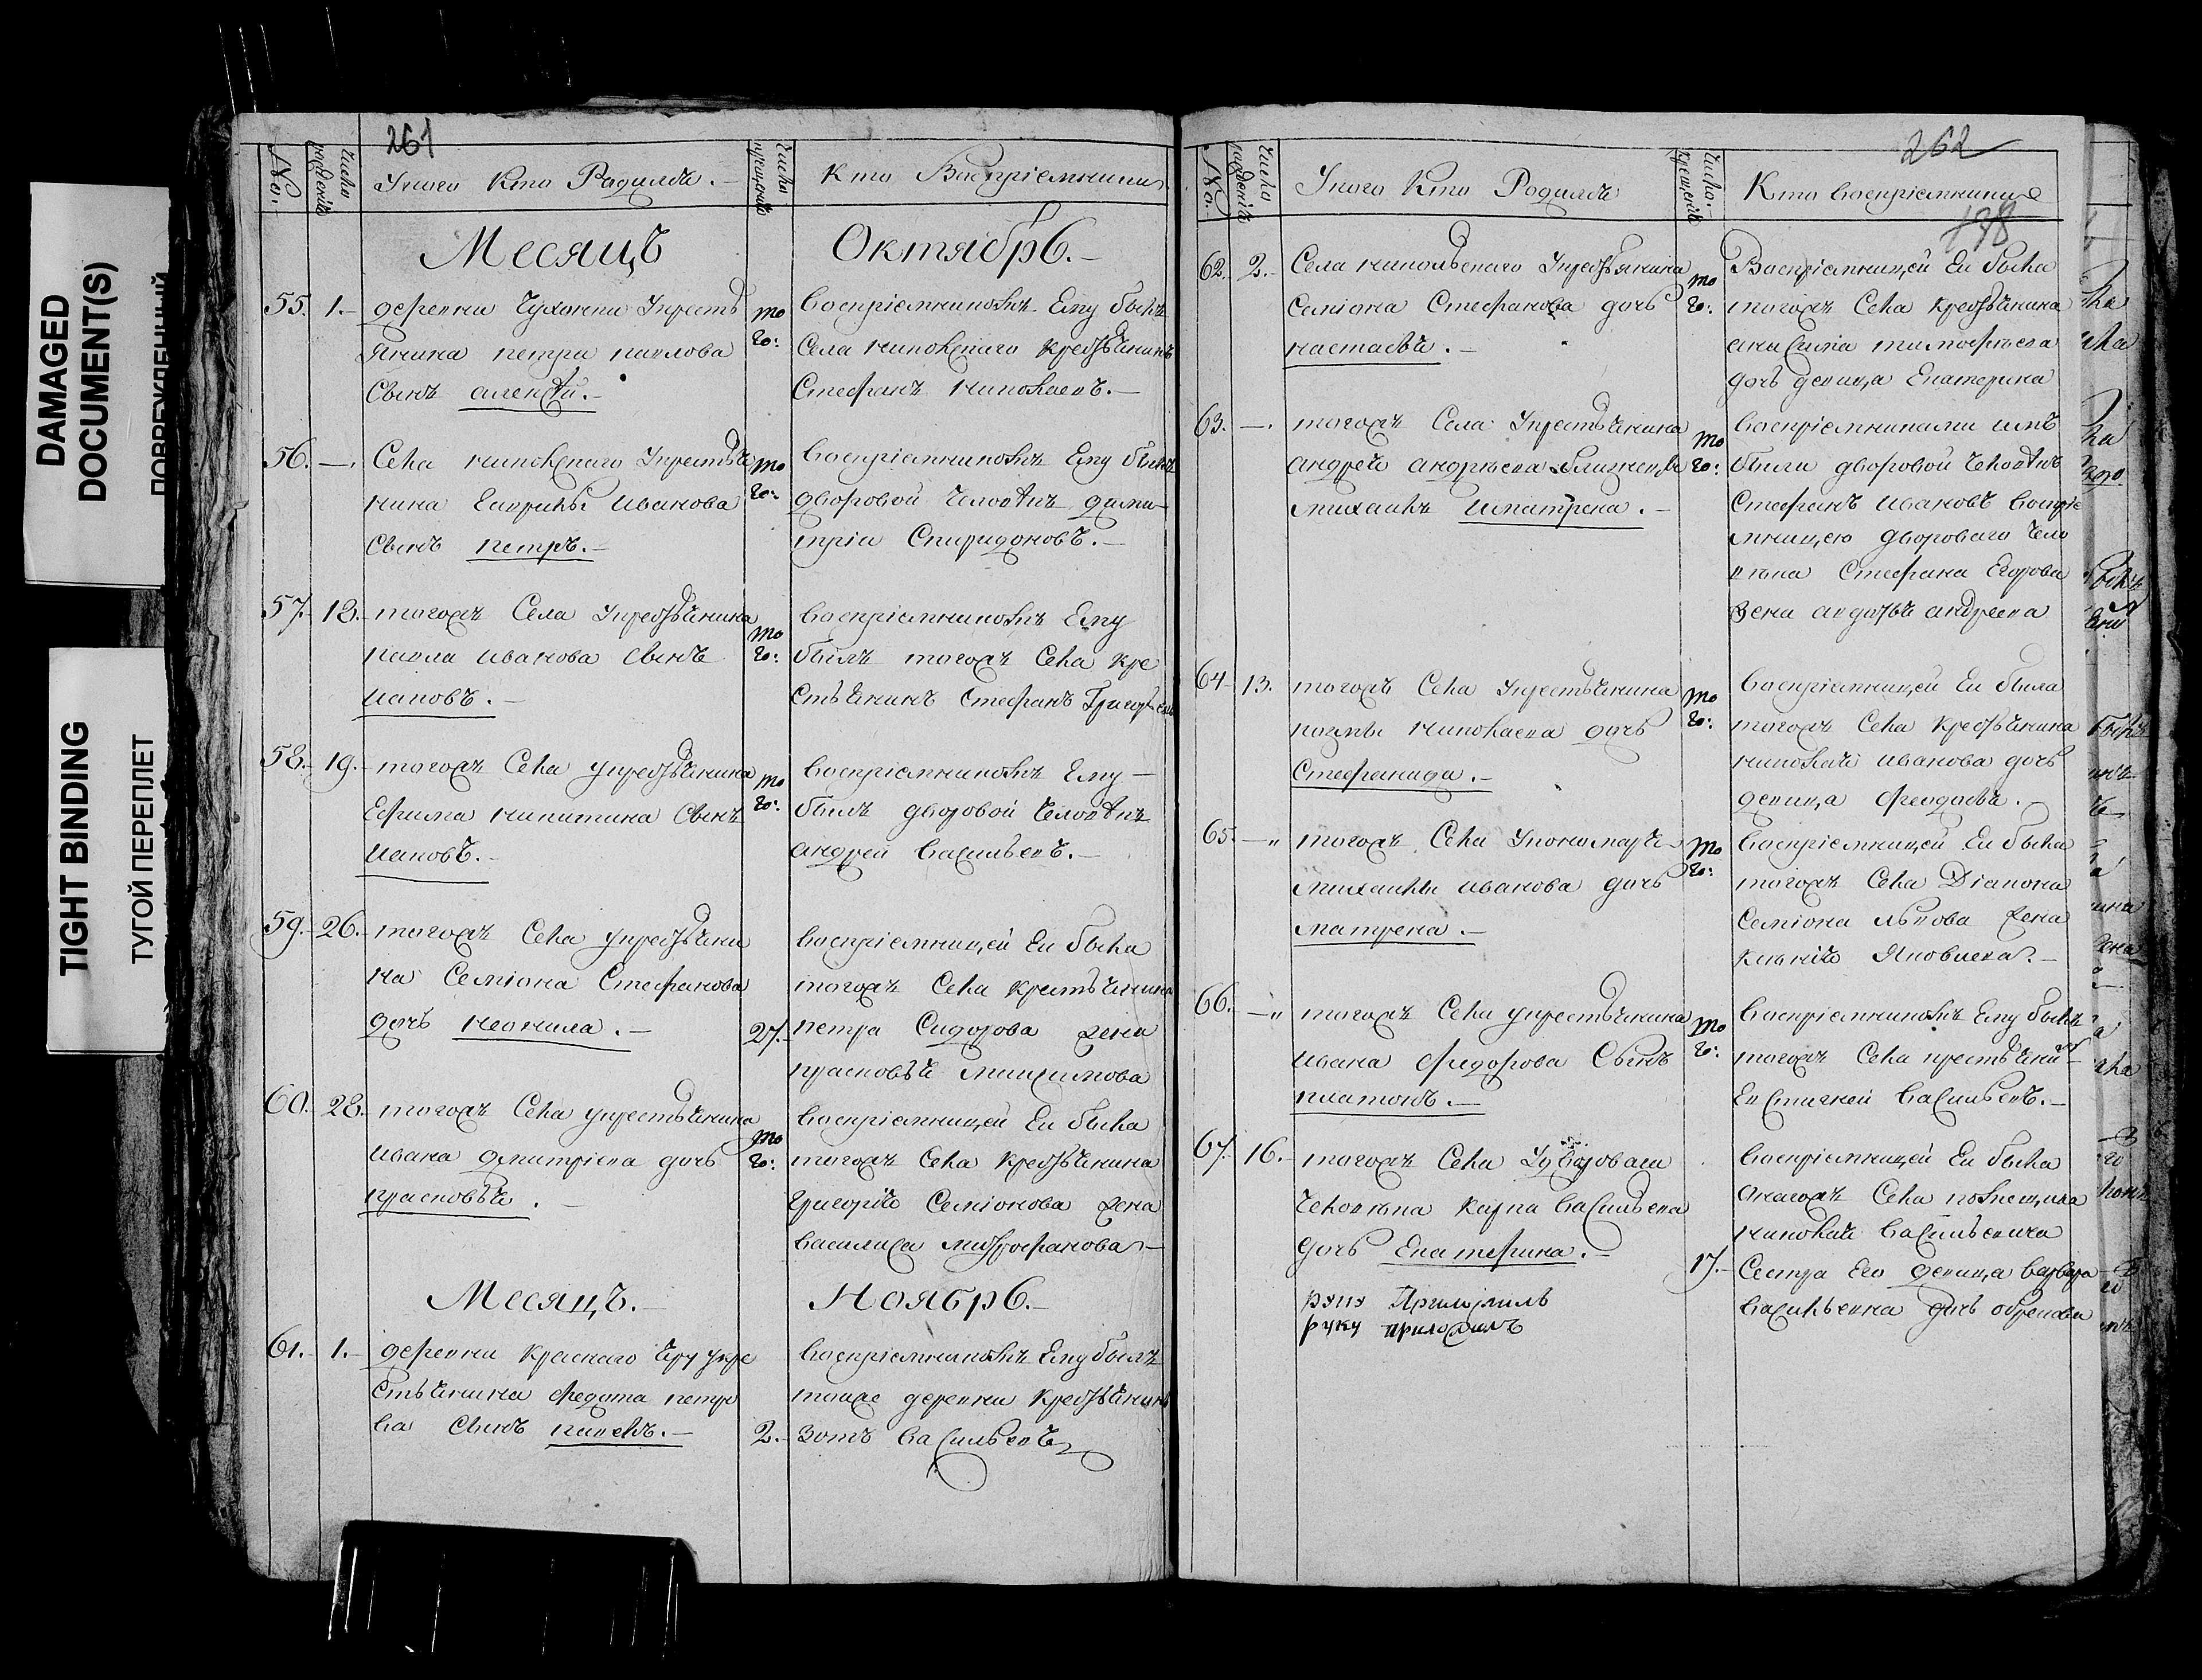 DAMAGED
DOCUMENT(S)
TIGHT BINDING
ТУГОЙ ПЕРЕПЛЕТ
261
No. Число рождения Укого Кто Родилсь.— Число крещения Кто Восприемники
Месяцъ Октябрь.—
55. 1. деревни Укрестьянина петра павлова сынъ алексѣй.—
того: восприемникомъ Ему былъ
Села николскаго крестьянинъ
Стефанъ николаевъ.—
56. —. Села николскаго Укрестья
нина Гаврилы иванова
сынъ петръ.—
того: восприемникомъ Ему былъ
дворовой человѣкъ дими
трiи Спиридоновъ.—
57. 12. тогожъ Села Укрестьянина
павла иванова сынъ
иаковъ.—
того: восприемникомъ Ему
былъ тогожъ Села кре
стьянинъ Стефанъ Григорьевъ
58. 19. тогожъ Села укрестьянина
Ефима никитина сынъ
иаковъ.—
того: восприемникомъ Ему—
былъ дворовой человѣкъ
андрей васильевъ.—
59. 26. тогожъ Села укрестьяни
на Семiона Стефанова
дочь неонила.—
27. восприемницей Еи была
тогожъ Села крестьянина
петра Сидорова жена
прасковья максимова
60. 28. тогожъ Села укрестьянина
ивана дмитрiева дочь
прасковья.—
того: восприемницей Еи была
тогожъ Села крестьянина
григорiя Семiонова жена
василиса митрофанова—
Месяцъ.— Ноябрь.—
61. 1. деревни краснаго укре
стьянина федота петро
ва сынъ павелъ.—
2. восприемникомъ Ему былъ
тоиже деревни крестьянинъ
зотъ васильевъ
262
198
No. Число рождения Укого Кто Родилсь Число: крещения Кто восприемники
62. 2. Села никольскаго Укрестьянина
Семiона Стефанова дочь
настасья.—
того: Восприемницей Еи была
тогожъ Села крестьянина
анисима тимофѣева
дочь девица Екатерина
63. —. тогожъ Села Укрестьянина
андрея андрѣева близнецы
михаилъ иматрена.—
того: восприемниками имъ
были дворовой человѣкъ
Стефанъ ивановъ воспрiе
мницею двороваго чело
вѣка Стефана Егорова
жена авдотья андреева
64. 13. тогожъ Села Укрестьянина
козмы николаева дочь
Стефанида.—
того: восприемницей Еи была
тогожъ Села крестьянина
николая иванова дочь
девица феодосья.
65. —„ тогожъ Села Упономаря
михаилы иванова дочь
матрена.—
того: восприемницей Еи была
тогожъ Села Дiакона
Семiона львова жена
Яковлева.—
66. —„ тогожъ Села укрестьянина
ивана федорова Сынъ
платонъ.—
того: восприемникомъ Ему былъ
тогожъ Села крестьянинъ
Евстигней васильевъ.—
67. 16. тогожъ Села Удворовага
человѣка карпа васильева
дочь Екатерина.—
17. восприемницей Еи была
онагожъ Села помещика
николая васильевича
Сестра Его девица варвара
васильевна дочь
руку Приложилъ
руку приложилъ